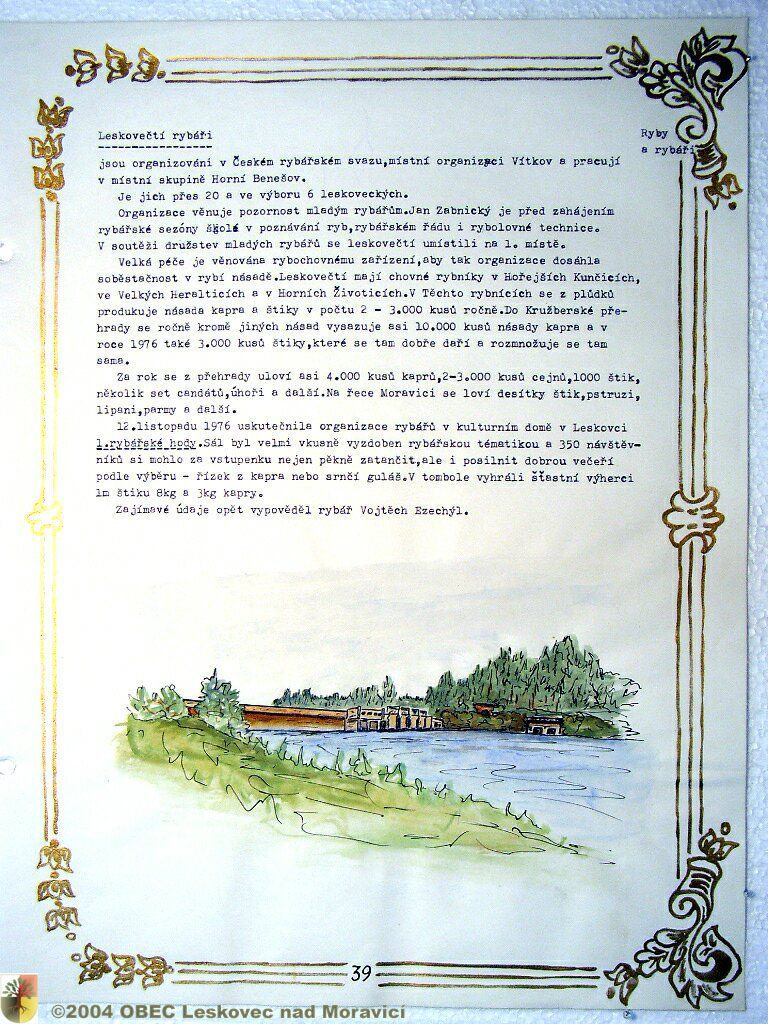 Leskovečtí rybáři
Ryby
a rybáři
jsou organizováni v Českém rybářském svazu,místní organizaci Vítkov a pracují
v místní skupině Horní Benešov.
Je jich přes 20 a ve výboru 6 leskoveckých.
Organizace věnuje pozornost mladým rybářům.Jan Zabnický je před zahájením
rybářské sezóny školé v poznávání ryb,rybářském řádu i rybolovné technice.
V soutěži družstev mladých rybářů se leskovečtí umístili na 1. místě.
Velká péče je věnována rybochovnému zařízení,aby tak organizace dosáhla
soběstačnost v rybí násadě.Leskovečtí mají chovné rybníky v Hořejších Kunčicích,
ve Velkých Heralticích a v Horních Životicích.V Těchto rybnících se z plůdků
produkuje násada kapra a štiky v počtu 2 - 3.000 kusů ročně.Do Kružberské pře-
hrady se ročně kromě jiných násad vysazuje asi 10.000 kusů násady kapra a v
roce 1976 také 3.000 kusů štiky,které se tam dobře daří a rozmnožuje se tam
sama.
Za rok se z přehrady uloví asi 4.000 kusů kaprů,2-3.000 kusů cejnů,1000 štik,
několik set candátů,úhoři a další.Na řece Moravici se loví desítky štik,pstruzi,
lipani,parmy a další.
12.listopadu 1976 uskutečnila organizace rybářů v kulturním domě v Leskovci
1.rybářské hody.Sál byl velmi vkusně vyzdoben rybářskou tématikou a 350 návštěv-
níků si mohlo za vstupenku nejen pěkně zatančit,ale i posilnit dobrou večeří
podle výběru - řízek z kapra nebo srnčí guláš.V tombole vyhráli šťastní výherci
1m štiku 8kg a 3kg kapry.
Zajímavé údaje opět vypověděl rybář Vojtěch Ezechýl.
39
©2004 OBEC Leskovec nad Moravicí